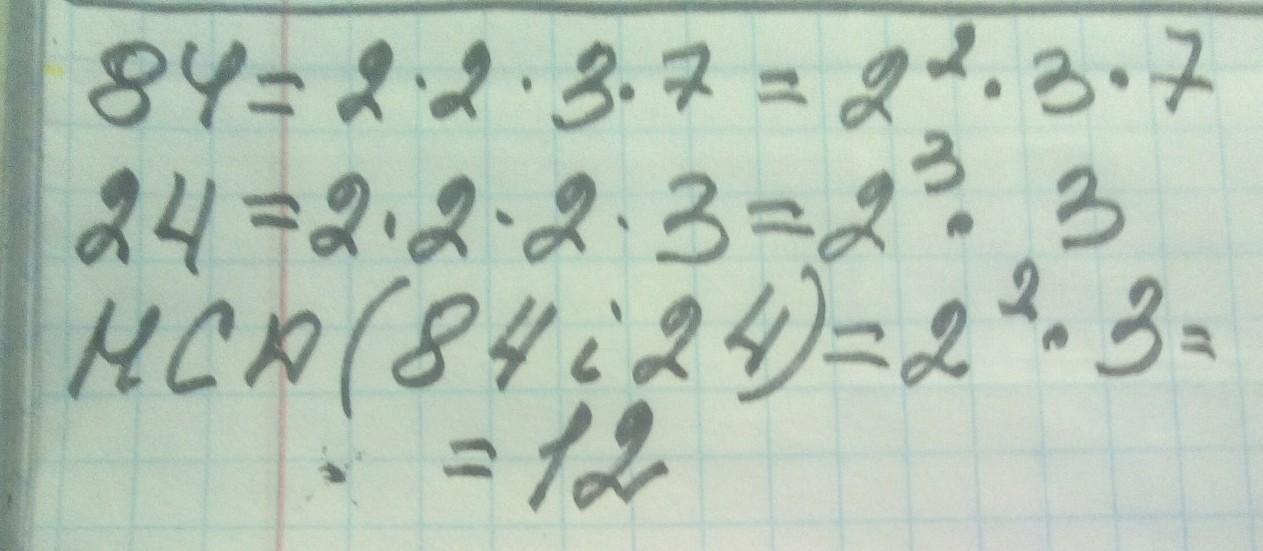 84 = 2 · 2 · 3 · 7 = 2² · 3 · 7
24 = 2 · 2 · 2 · 3 = 2³ · 3
НСД (84 і 24) = 2² · 3 =
= 12